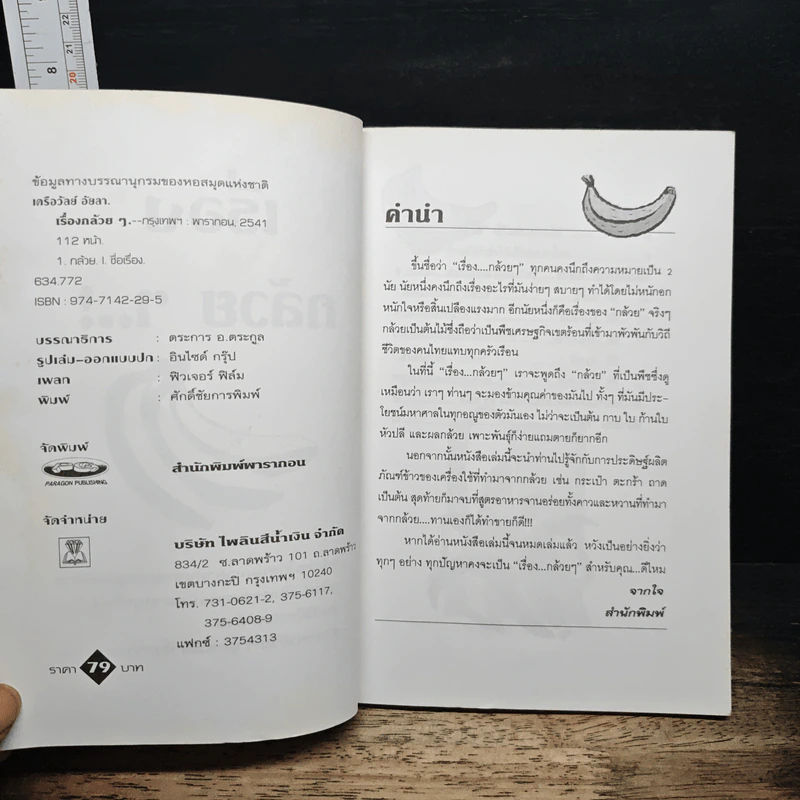 ข้อมูลทางบรรณานุกรมของหอสมุดแห่งชาติ
เครือวัลย์ อัยลา.
เรื่องกล้วย ๆ.--กรุงเทพฯ : พารากอน, 2541
112 หน้า.
1. กล้วย. I. ชื่อเรื่อง.
634.772
ISBN : 974-7142-29-5
บรรณาธิการ : ตระการ อ.ตระกูล
รูปเล่ม-ออกแบบปก : อินไซด์ กรุ๊ป
เพลท : ฟิวเจอร์ ฟิล์ม
พิมพ์ : ศักดิ์ชัยการพิมพ์
จัดพิมพ์
PARAGON PUBLISHING
สำนักพิมพ์พารากอน
จัดจำหน่าย
บริษัท ไพลินสีน้ำเงิน จำกัด
834/2 ซ.ลาดพร้าว 101 ถ.ลาดพร้าว
เขตบางกะปิ กรุงเทพฯ 10240
โทร. 731-0621-2, 375-6117,
375-6408-9
แฟกซ์ : 3754313
ราคา 79 บาท
คำนำ
ขึ้นชื่อว่า “เรื่อง....กล้วยๆ” ทุกคนคงนึกถึงความหมายเป็น 2
นัย นัยหนึ่งคงนึกถึงเรื่องอะไรที่มันง่ายๆ สบายๆ ทำได้โดยไม่หนักอก
หนักใจหรือสิ้นเปลืองแรงมาก อีกนัยหนึ่งก็คือเรื่องของ “กล้วย” จริงๆ
กล้วยเป็นต้นไม้ซึ่งถือว่าเป็นพืชเศรษฐกิจเขตร้อนที่เข้ามาพัวพันกับวิถี
ชีวิตของคนไทยแทบทุกครัวเรือน
ในที่นี้ “เรื่อง....กล้วยๆ” เราจะพูดถึง “กล้วย” ที่เป็นพืชซึ่งดู
เหมือนว่า เราๆ ท่านๆ จะมองข้ามคุณค่าของมันไป ทั้งๆ ที่มันมีประ-
โยชน์มหาศาลในทุกอณูของตัวมันเอง ไม่ว่าจะเป็นต้น กาบ ใบ ก้านใบ
หัวปลี และผลกล้วย เพาะพันธุ์ก็ง่ายแถมตายก็ยากอีก
นอกจากนั้นหนังสือเล่มนี้จะนำท่านไปรู้จักกับการประดิษฐ์ผลิต
ภัณฑ์ข้าวของเครื่องใช้ที่ทำมาจากกล้วย เช่น กระเป๋า ตะกร้า ถาด
เป็นต้น สุดท้ายก็มาจบที่สูตรอาหารจานอร่อยทั้งคาวและหวานที่ทำมา
จากกล้วย....ทานเองก็ได้ทำขายก็ดี!!!
หากได้อ่านหนังสือเล่มนี้จนหมดเล่มแล้ว หวังเป็นอย่างยิ่งว่า
ทุกๆ อย่าง ทุกปัญหาคงจะเป็น “เรื่อง...กล้วยๆ” สำหรับคุณ...ดีไหม
จากใจ
สำนักพิมพ์
8
22
21
20